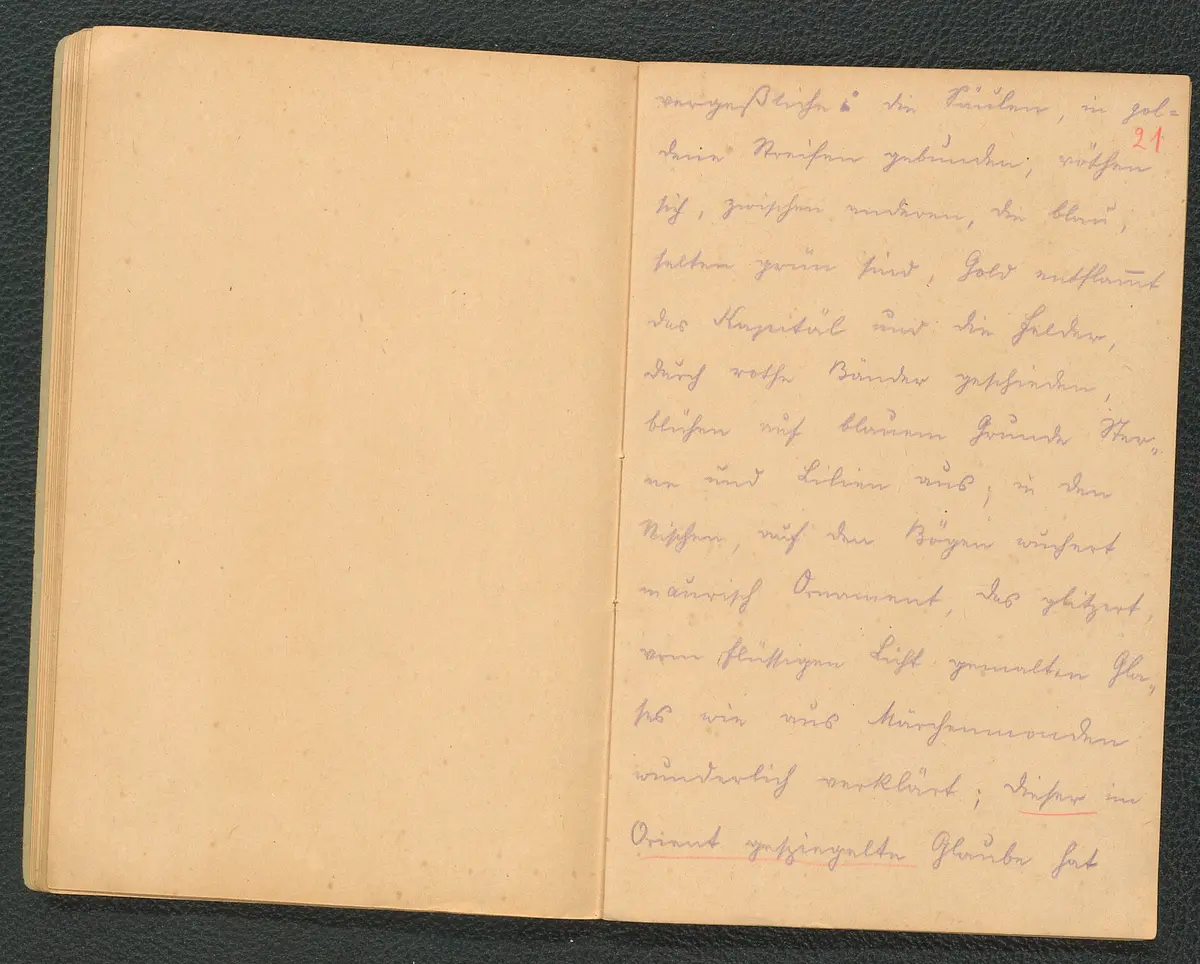 vergeßliche: die Säulen, in gol=
21
dene Streifen gebunden, röthen
sich, zwischen anderen, die blau,
selten grün sind, Gold entflam̅t
das Kapitäl und die Felder,
durch rothe Bänder geschieden,
blühen auf blauem Grunde Ster„
ne und Lilien aus; in den
Nischen, auf den Bögen wuchert
maurisch Ornament, das glitzert,
vom flüssigen Licht gemalten Gla„
ses wie aus Märchenmonden
wunderlich verklärt; dieser im
Orient gespiegelte Glaube hat